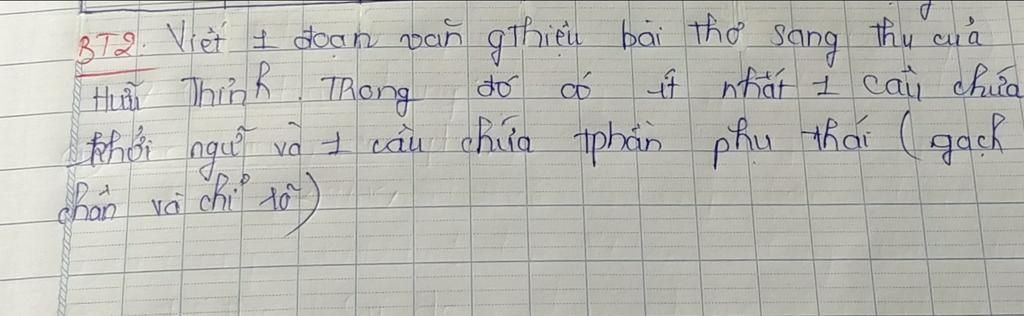 BT2. Viết 1 đoạn văn gthiệu bài thơ sang thu của
Hữu Thỉnh. Trong đó có ít nhất 1 câu chứa
khởi ngữ và 1 câu chứa tphần phụ thái (gạch
chân và chỉ rõ)